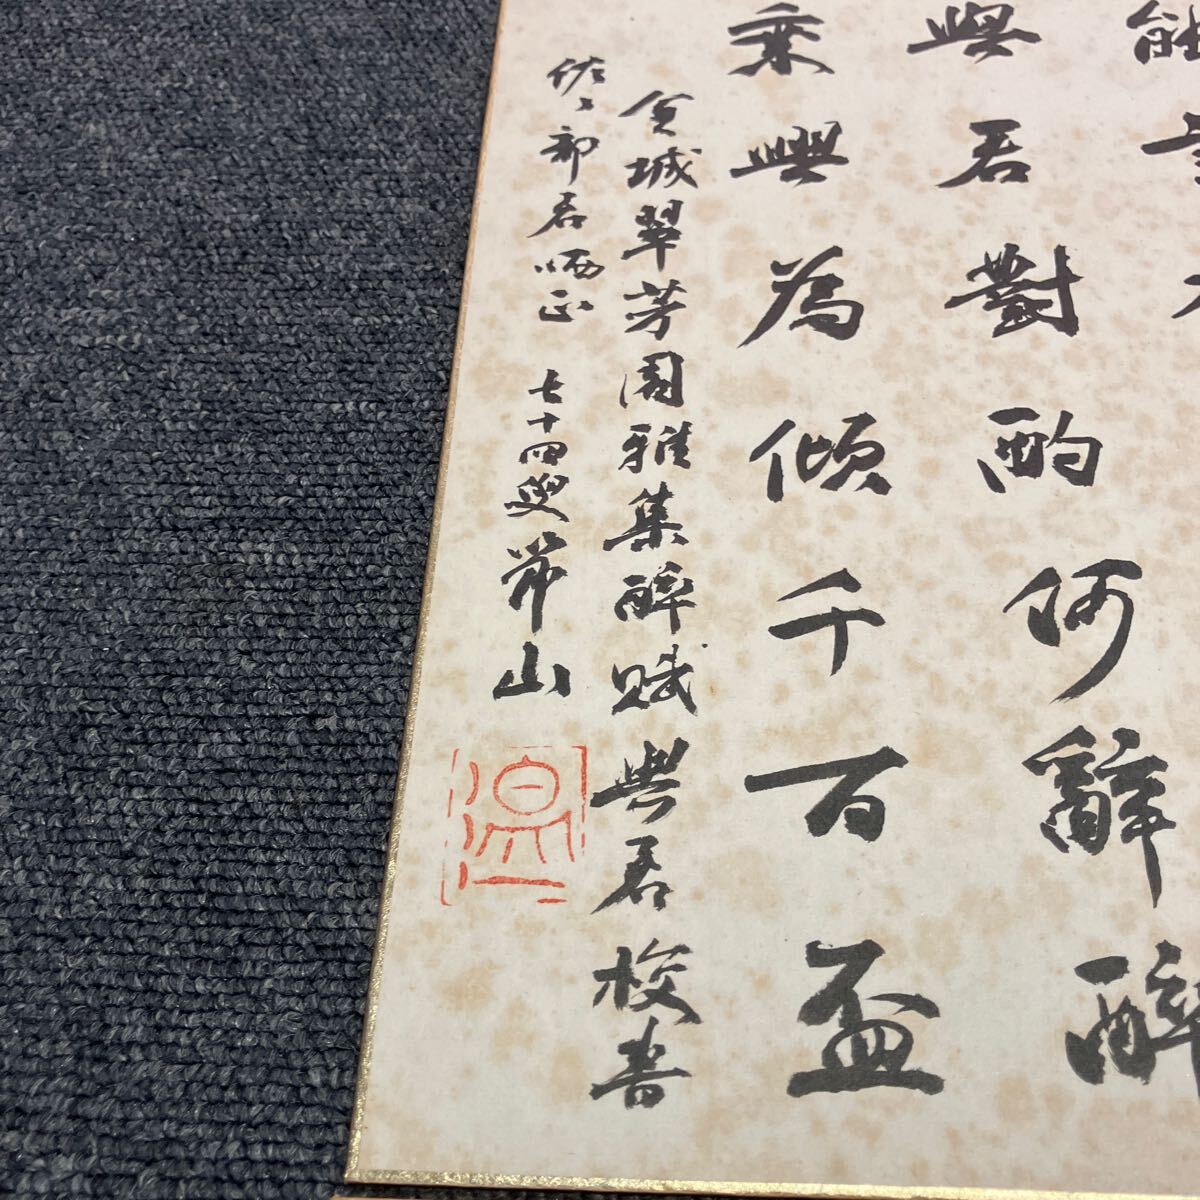 與君對酌何辭醉
乘興為傾千百盃
金城翠芳園雅集醉賦興君校書
佐々部君哂正 七十四叟 山
温